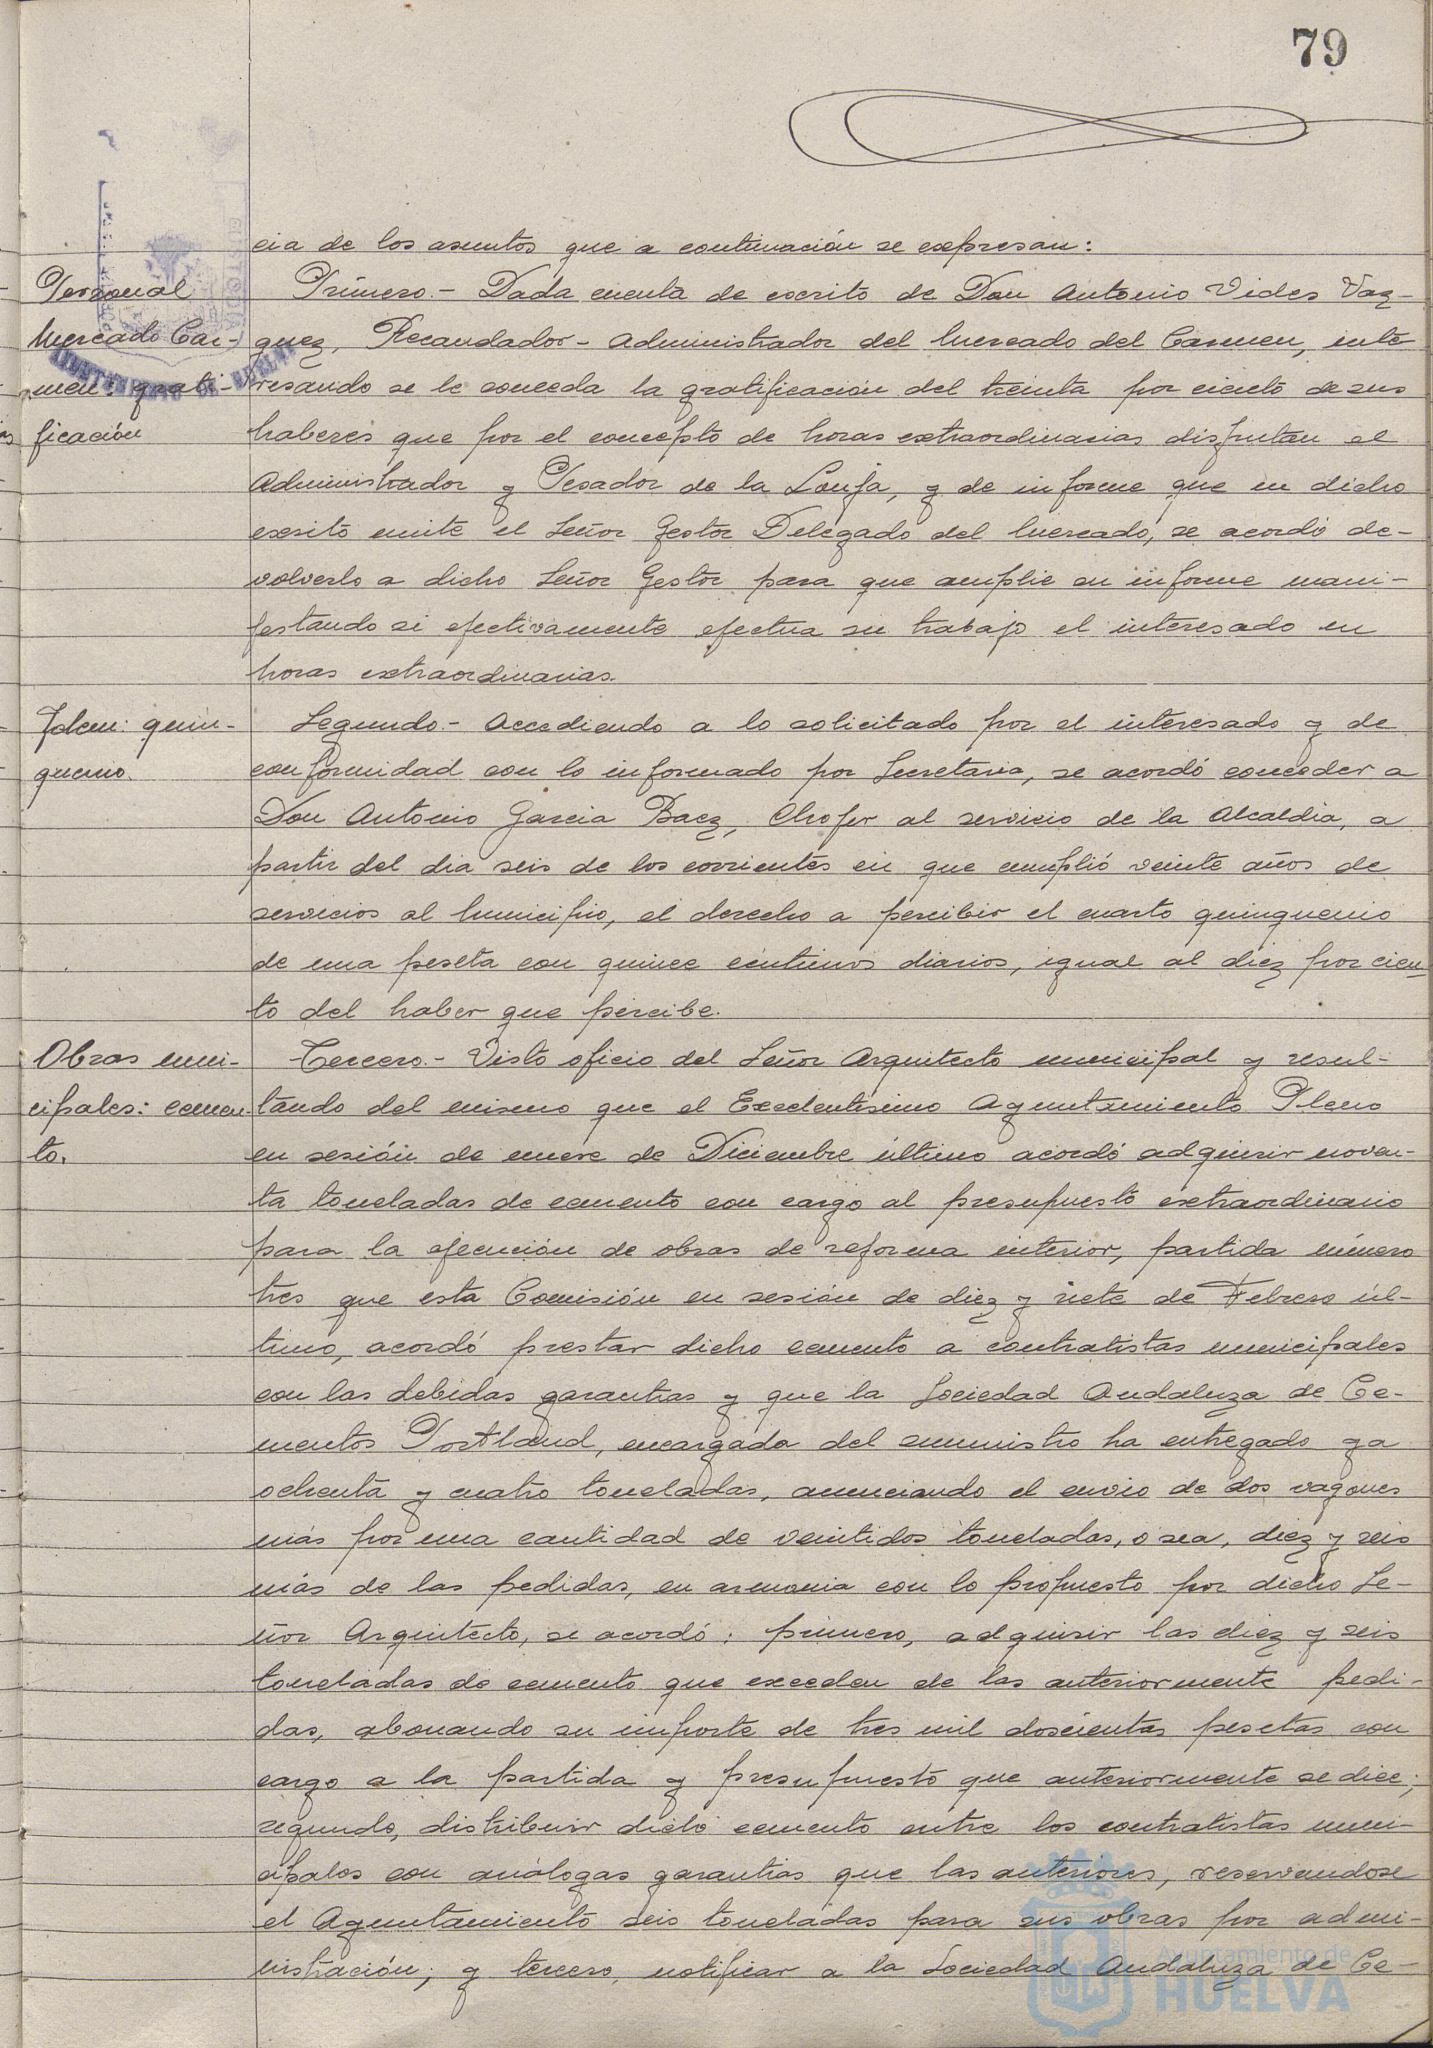 79
cia de los asuntos que a continuación se expresan:
Personal
Mercado Car-
men: grati-
ficación
Primero.- Dada cuenta de escrito de Don Antonio Vides Vaz-
quez, Recaudador-Administrador del Mercado del Carmen, inte
resando se le conceda la gratificación del treinta por ciento de sus
haberes que por el concepto de horas extraordinarias disfrutan el
Administrador y Pesador de la Lonja, y de informe que en dicho
escrito emite el Señor Gestor Delegado del Mercado, se acordó de-
volverlo a dicho Señor Gestor para que amplie su informe mani-
festando si efectivamente efectua su trabajo el interesado en
horas extraordinarias.
Idem: quin-
quenio.
Segundo.- Accediendo a lo solicitado por el interesado y de
conformidad con lo informado por Secretaria, se acordó conceder a
Don Antonio Garcia Baez, Chofer al servicio de la Alcaldia, a
partir del dia seis de los corrientes en que cumplió veinte años de
servicios al Municipio, el derecho a percibir el cuarto quinquenio
de una peseta con quince céntimos diarios, igual al diez por cien-
to del haber que percibe.
Obras muni-
cipales: cemen-
to.
Tercero.- Visto oficio del Señor Arquitecto municipal y resul-
tando del mismo que el Excelentisimo Ayuntamiento Pleno
en sesión de nueve de Diciembre último acordó adquirir noven-
ta toneladas de cemento con cargo al presupuesto extraordinario
para la ejecución de obras de reforma interior, partida número
tres que esta Comisión en sesión de diez y siete de Febrero úl-
timo, acordó prestar dicho cemento a contratistas municipales
con las debidas garantias y que la Sociedad Andaluza de Ce-
mentos Portland, encargada del suministro ha entregado ya
ochenta y cuatro toneladas, anunciando el envio de dos vagones
más por una cantidad de veintidos toneladas, o sea, diez y seis
más de las pedidas, en armonia con lo propuesto por dicho Se-
ñor Arquitecto, se acordó: primero, adquirir las diez y seis
toneladas de cemento que exceden de las anteriormente pedi-
das, abonando su importe de tres mil doscientas pesetas con
cargo a la partida y presupuesto que anteriormente se dice;
segundo, distribuir dicho cemento entre los contratistas muni-
cipales con análogas garantias que las anteriores, reservandose
el Ayuntamiento seis toneladas para sus obras por admi-
nistración; y tercero, notificar a la Sociedad Andaluza de Ce-
Ayuntamiento de
HUELVA